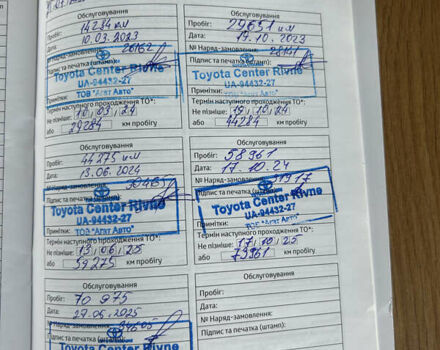 Обслуговування
Пробіг: 14284 км
Дата: 10.03.2023
№ Наряд-замовлення: 26162
Підпис та печатка (штамп):
Toyota Center Rivne
UA-94432-27
ТОВ "Агат Авто"
Примітки:
Термін наступного проходження ТО*:
Не пізніше: 10, 03, 24
або 29284 км пробігу
Обслуговування
Пробіг: 29651 км
Дата: 19.10.2023
№ Наряд-замовлення: 28141
Підпис та печатка (штамп):
Toyota Center Rivne
UA-94432-27
ТОВ "Агат Авто"
Примітки:
Термін наступного проходження ТО*:
Не пізніше: 19, 10, 24
або 44284 км пробігу
Обслуговування
Пробіг: 44275 км
Дата: 13.06.2024
№ Наряд-замовлення:
Підпис та печатка (штамп):
Toyota Center Rivne
UA-94432-27
ТОВ "Агат Авто"
Примітки:
Термін наступного проходження ТО*:
Не пізніше: 13, 06, 25
або 59275 км пробігу
Обслуговування
Пробіг: 58961
Дата: 17.10.24
№ Наряд-замовлення: 31917
Підпис та печатка
Toyota Center Rivne
UA-94432-27
ТОВ "Агат Авто"
Примітки:
Термін наступного проходження ТО*:
Не пізніше: 17, 10, 25
або 73961 км пробігу
Обслуговування
Пробіг: 70975
Дата: 27.06.2025
№ Наряд-замовлення: 34605
Підпис та печатка (штамп):
Toyota Center Rivne
Обслуговування
Пробіг:
Дата:
№ Наряд-замовлення:
Підпис та печатка (штамп):